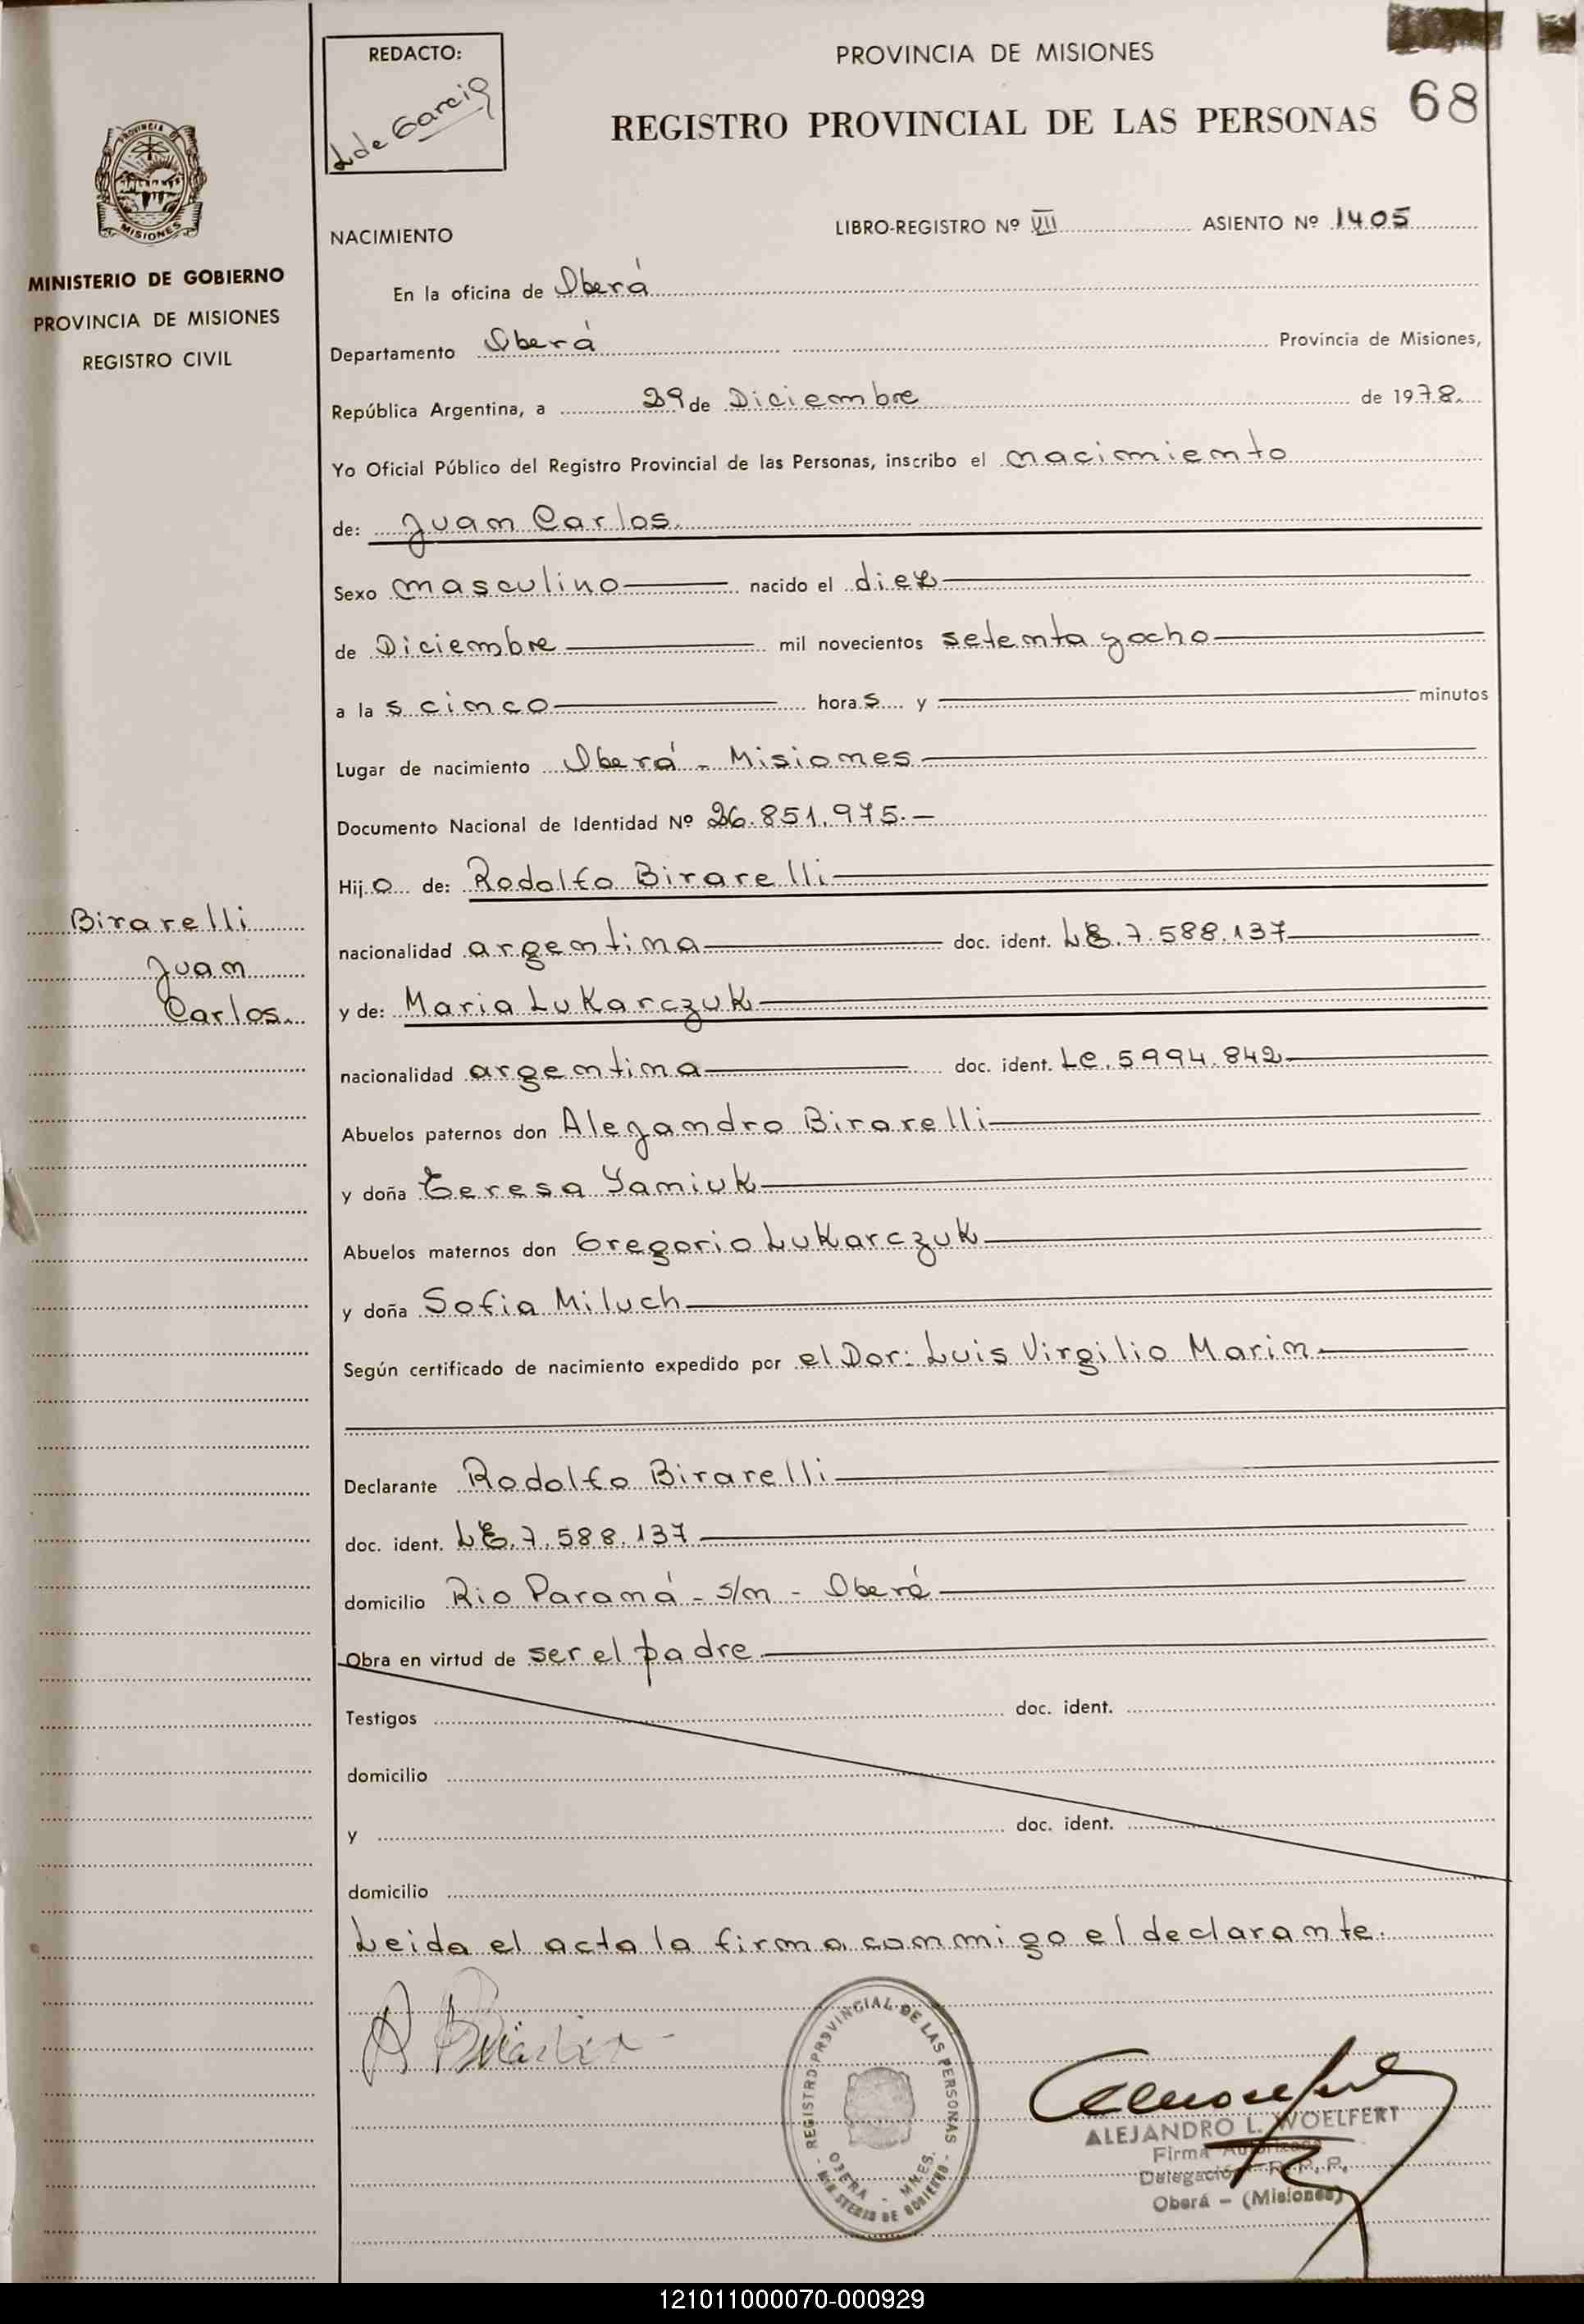 REDACTO:
L de Garcia
PROVINCIA DE MISIONES
REGISTRO PROVINCIAL DE LAS PERSONAS 68
PROVINCIA DE
MISIONES
MINISTERIO DE GOBIERNO
PROVINCIA DE MISIONES
REGISTRO CIVIL
NACIMIENTO
LIBRO-REGISTRO Nº VII ASIENTO Nº 1405
En la oficina de Oberá
Departamento Oberá Provincia de Misiones,
República Argentina, a 29 de Diciembre de 1978.
Yo Oficial Público del Registro Provincial de las Personas, inscribo el nacimiento
de: Juan Carlos.
Sexo masculino nacido el diez
de Diciembre mil novecientos setenta y ocho
a la s cinco hora s y minutos
Lugar de nacimiento Oberá - Misiones
Documento Nacional de Identidad Nº 26.851.975.-
Hij o de: Rodolfo Birarelli
Birarelli
Juan
Carlos.
nacionalidad argentina doc. ident. LE.7.588.137
y de: Maria Lukarczuk
nacionalidad argentina doc. ident. Lc.5994.842
Abuelos paternos don Alejandro Birarelli
y doña Teresa Yaniuk
Abuelos maternos don Gregorio Lukarczuk
y doña Sofia Miluch
Según certificado de nacimiento expedido por el Dor: Luis Virgilio Marin.
Declarante Rodolfo Birarelli
doc. ident. LE.7.588.137
domicilio Rio Paraná - s/n - Oberá
Obra en virtud de ser el padre
Testigos doc. ident.
domicilio
y doc. ident.
domicilio
Leida el acta la firma conmigo el declarante.
REGISTRO PROVINCIAL DE LAS PERSONAS
OBERA - MNES.
- MINISTERIO DE GOBIERNO -
ALEJANDRO L. WOELFERT
Firma Autorizada
Delegación R. P. P.
Oberá - (Misiones)
121011000070-000929